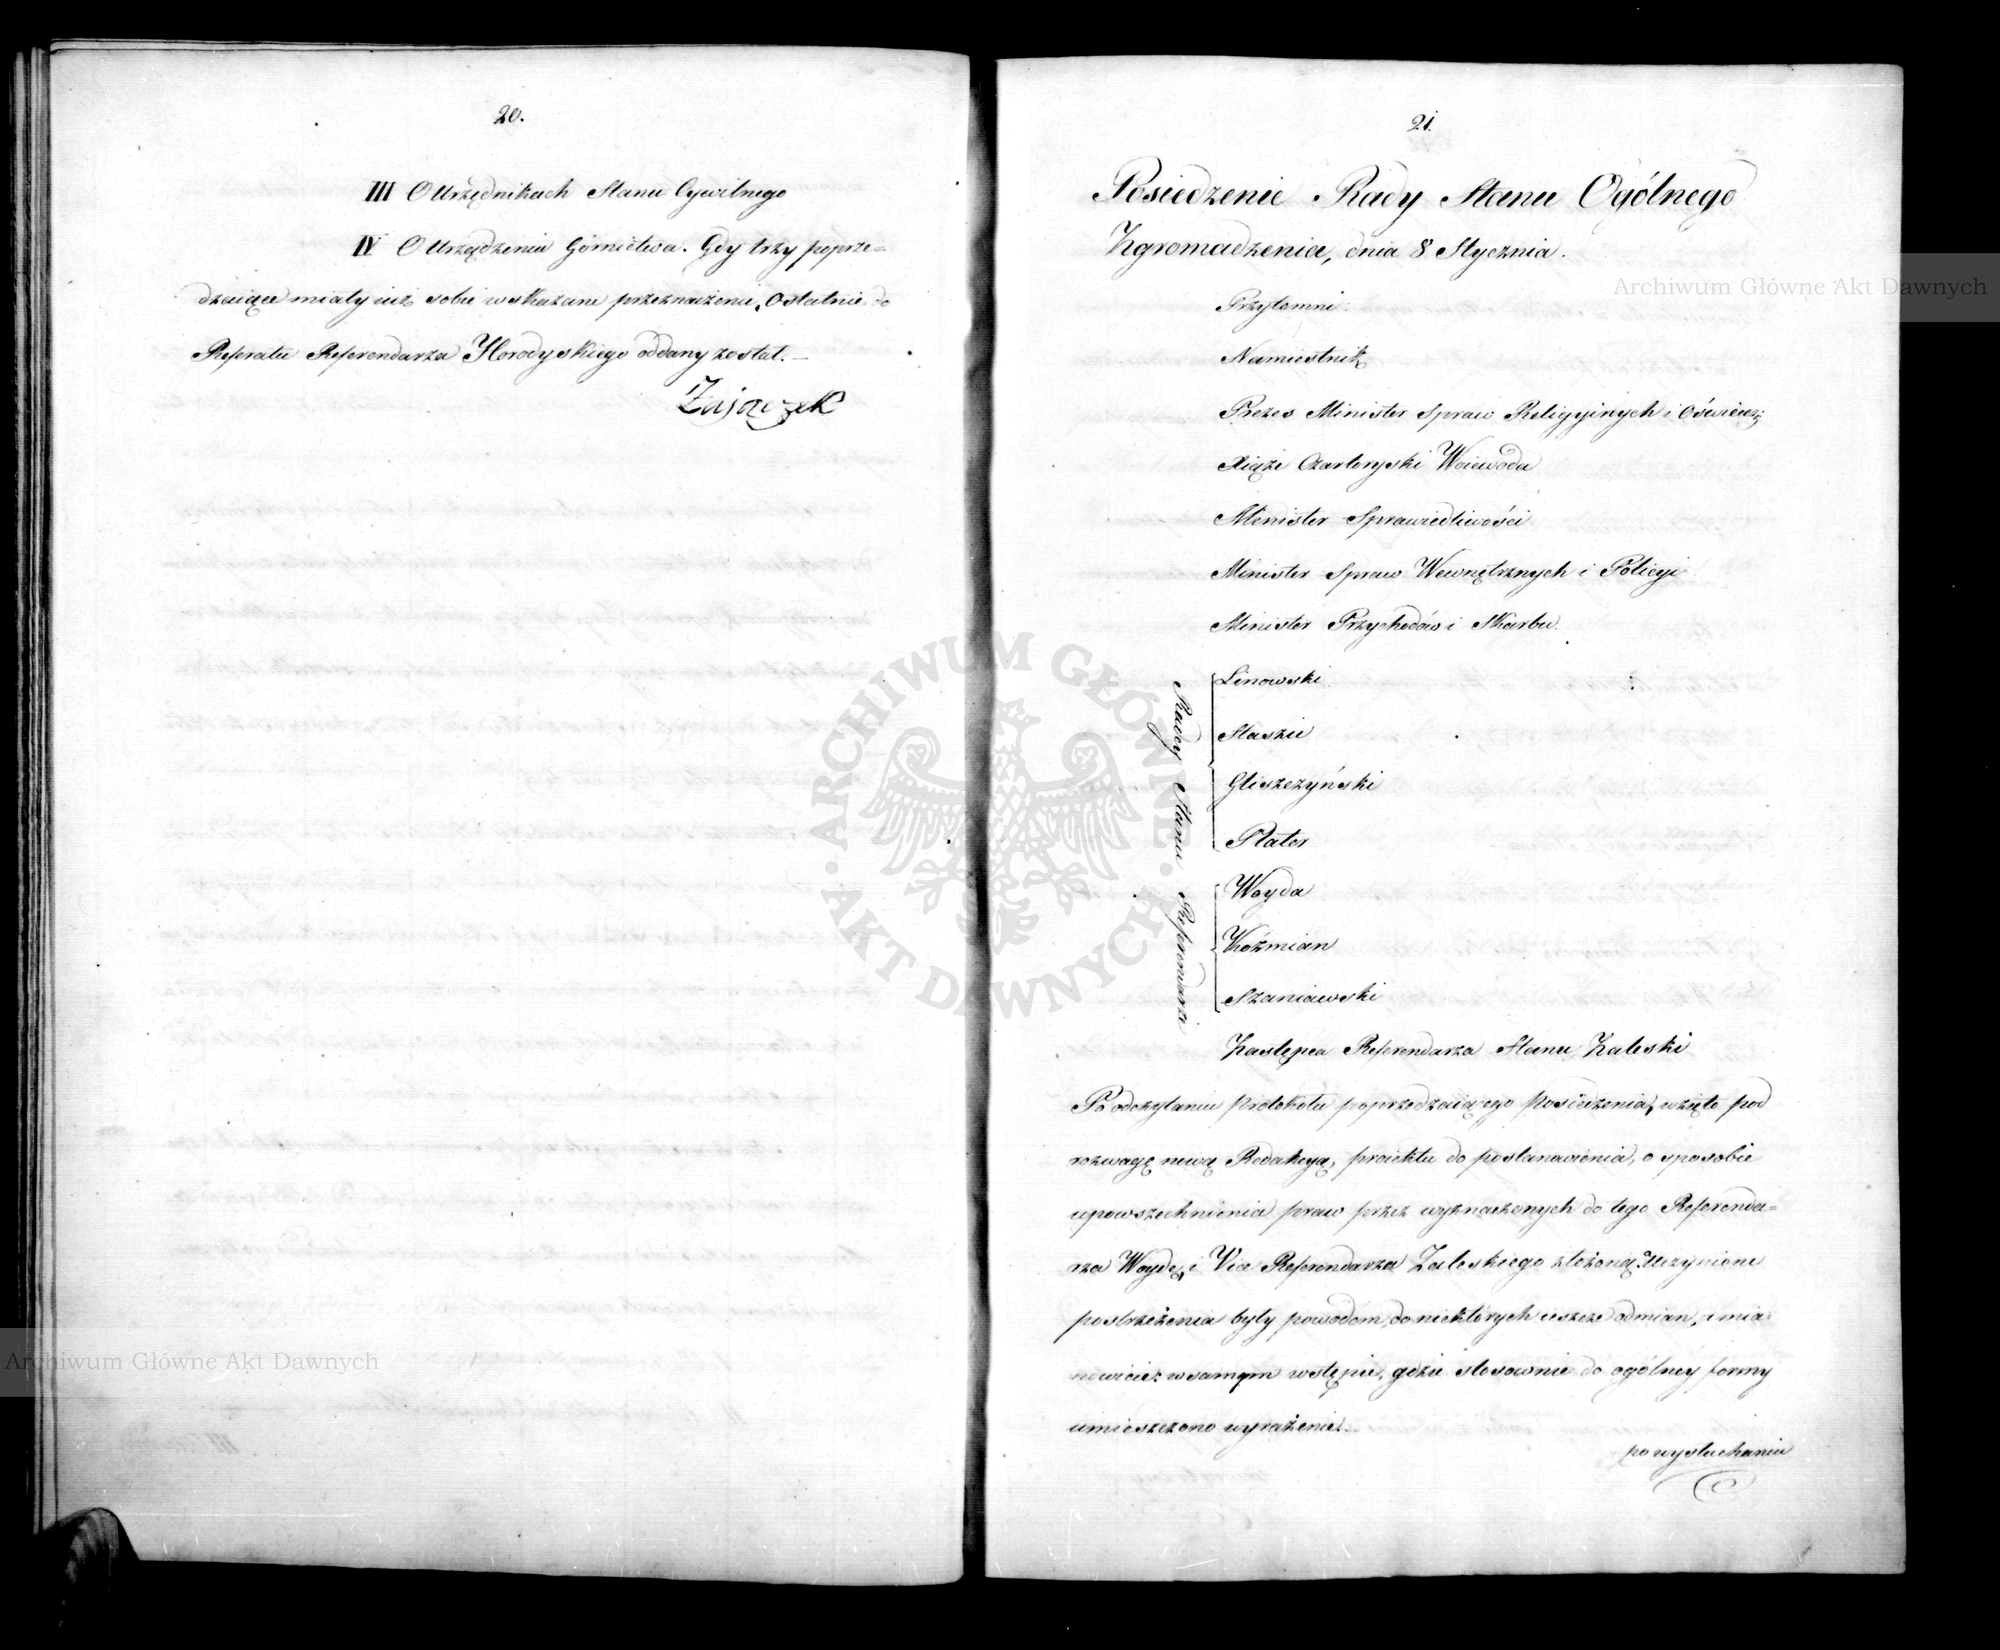 20.
III O Urzędnikach Stanu Cywilnego
IV O Urządzeniu Górnictwa. Gdy trzy poprze=
dzaiące miały iuż sobie wskazane przeznaczenie, ostatnie do
Referatu Referendarza Horodyskiego oddany został.
Zajączek
21.
Posiedzenie Rady Stanu Ogólnego
Zgromadzenia, dnia 8 Stycznia.
Przytomni:
Namiestnik
Prezes Minister Spraw Religyinych i Oświece:
Xiąże Czartoryski Woiewoda
Minister Sprawiedliwości
Minister Spraw Wewnętrznych i Policyi
Minister Przychodów i Skarbu.
Radcy Stanu
Linowski
Staszic
Gliszczyński
Plater
Referendarze
Woyda
Koźmian
Szaniawski
Zastępca Referendarza Stanu Zaleski
Po odczytaniu Protokołu poprzedzaiącego Posiedzenia, wzięto pod
rozwagę nową Redakcyą, proiektu do postanowienia, o sposobie
upowszechnienia praw przez wyznaczonych do tego Referenda=
rza Woydę, i Vice Referendarza Zaleskiego złożoną. Uczynione
postrzeżenia były powodem, do niektórych ieszcze odmian, a mia:
nowicie: w samym wstępie, gdzie stosownie do ogólney formy
umieszczono wyrażenie:
po wysłuchaniu
Archiwum Główne Akt Dawnych
ARCHIWUM GŁÓWNE · AKT DAWNYCH ·
Archiwum Główne Akt Dawnych